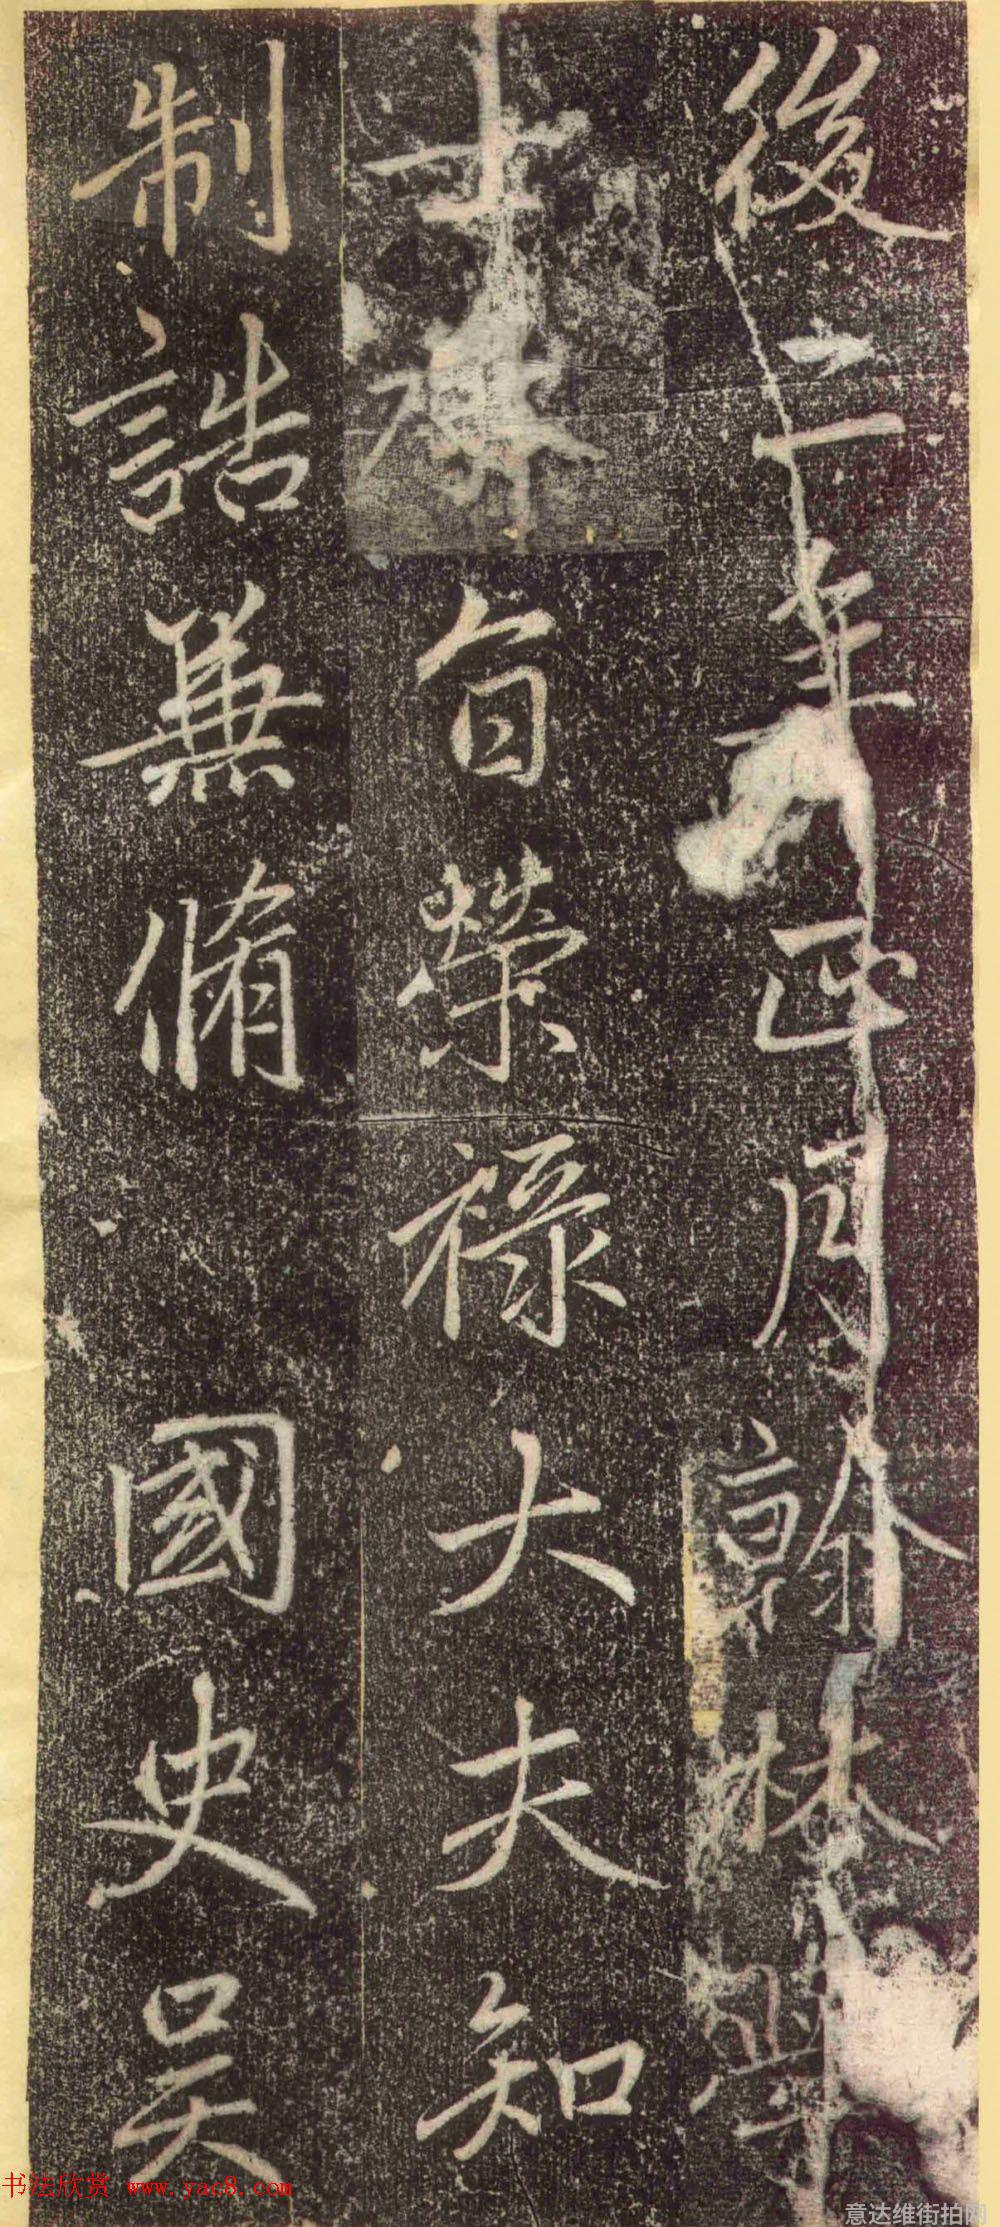 後二年正月翰林學
士承旨榮祿大夫知
制誥兼脩 國史吳
书法欣赏 www.yac8.com
意达维街拍网